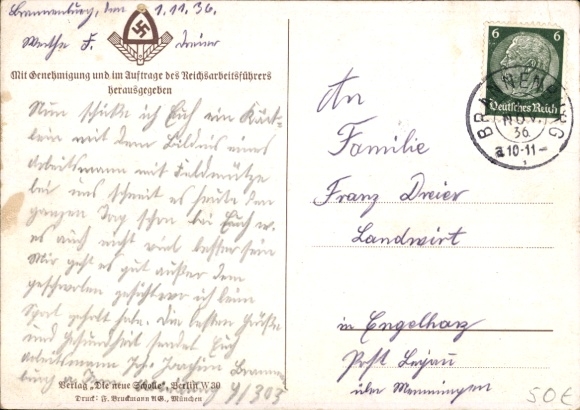 Brannenburg, den 1.11.36.
Werthe F. Dreier
Mit Genehmigung und im Auftrage des Reichsarbeitsführers
herausgegeben
Nun schicke ich Euch ein Kärt-
lein mit dem Bildnis eines
Arbeitsmann mit Feldmütze
bei uns schneit es heute den
ganzen Tag schon bei Euch w.
es auch nicht viel besser sein
Mir geht es gut außer dem
geschwollen Gesicht wo ich beim
Sport geholt habe. Die besten Grüße
und Gesundheit sendet Euch
Arbeitsmann Joachim
Verlag „Die neue Scholle“, Berlin W 30
Druck: F. Bruckmann AG., München
9/303
6 6
Deutsches Reich
BRANNENBURG
1
NOV.
36
a 10-11-
An
Familie
Franz Dreier
Landwirt
in Engelharz
Post Legau
über Memmingen
50€